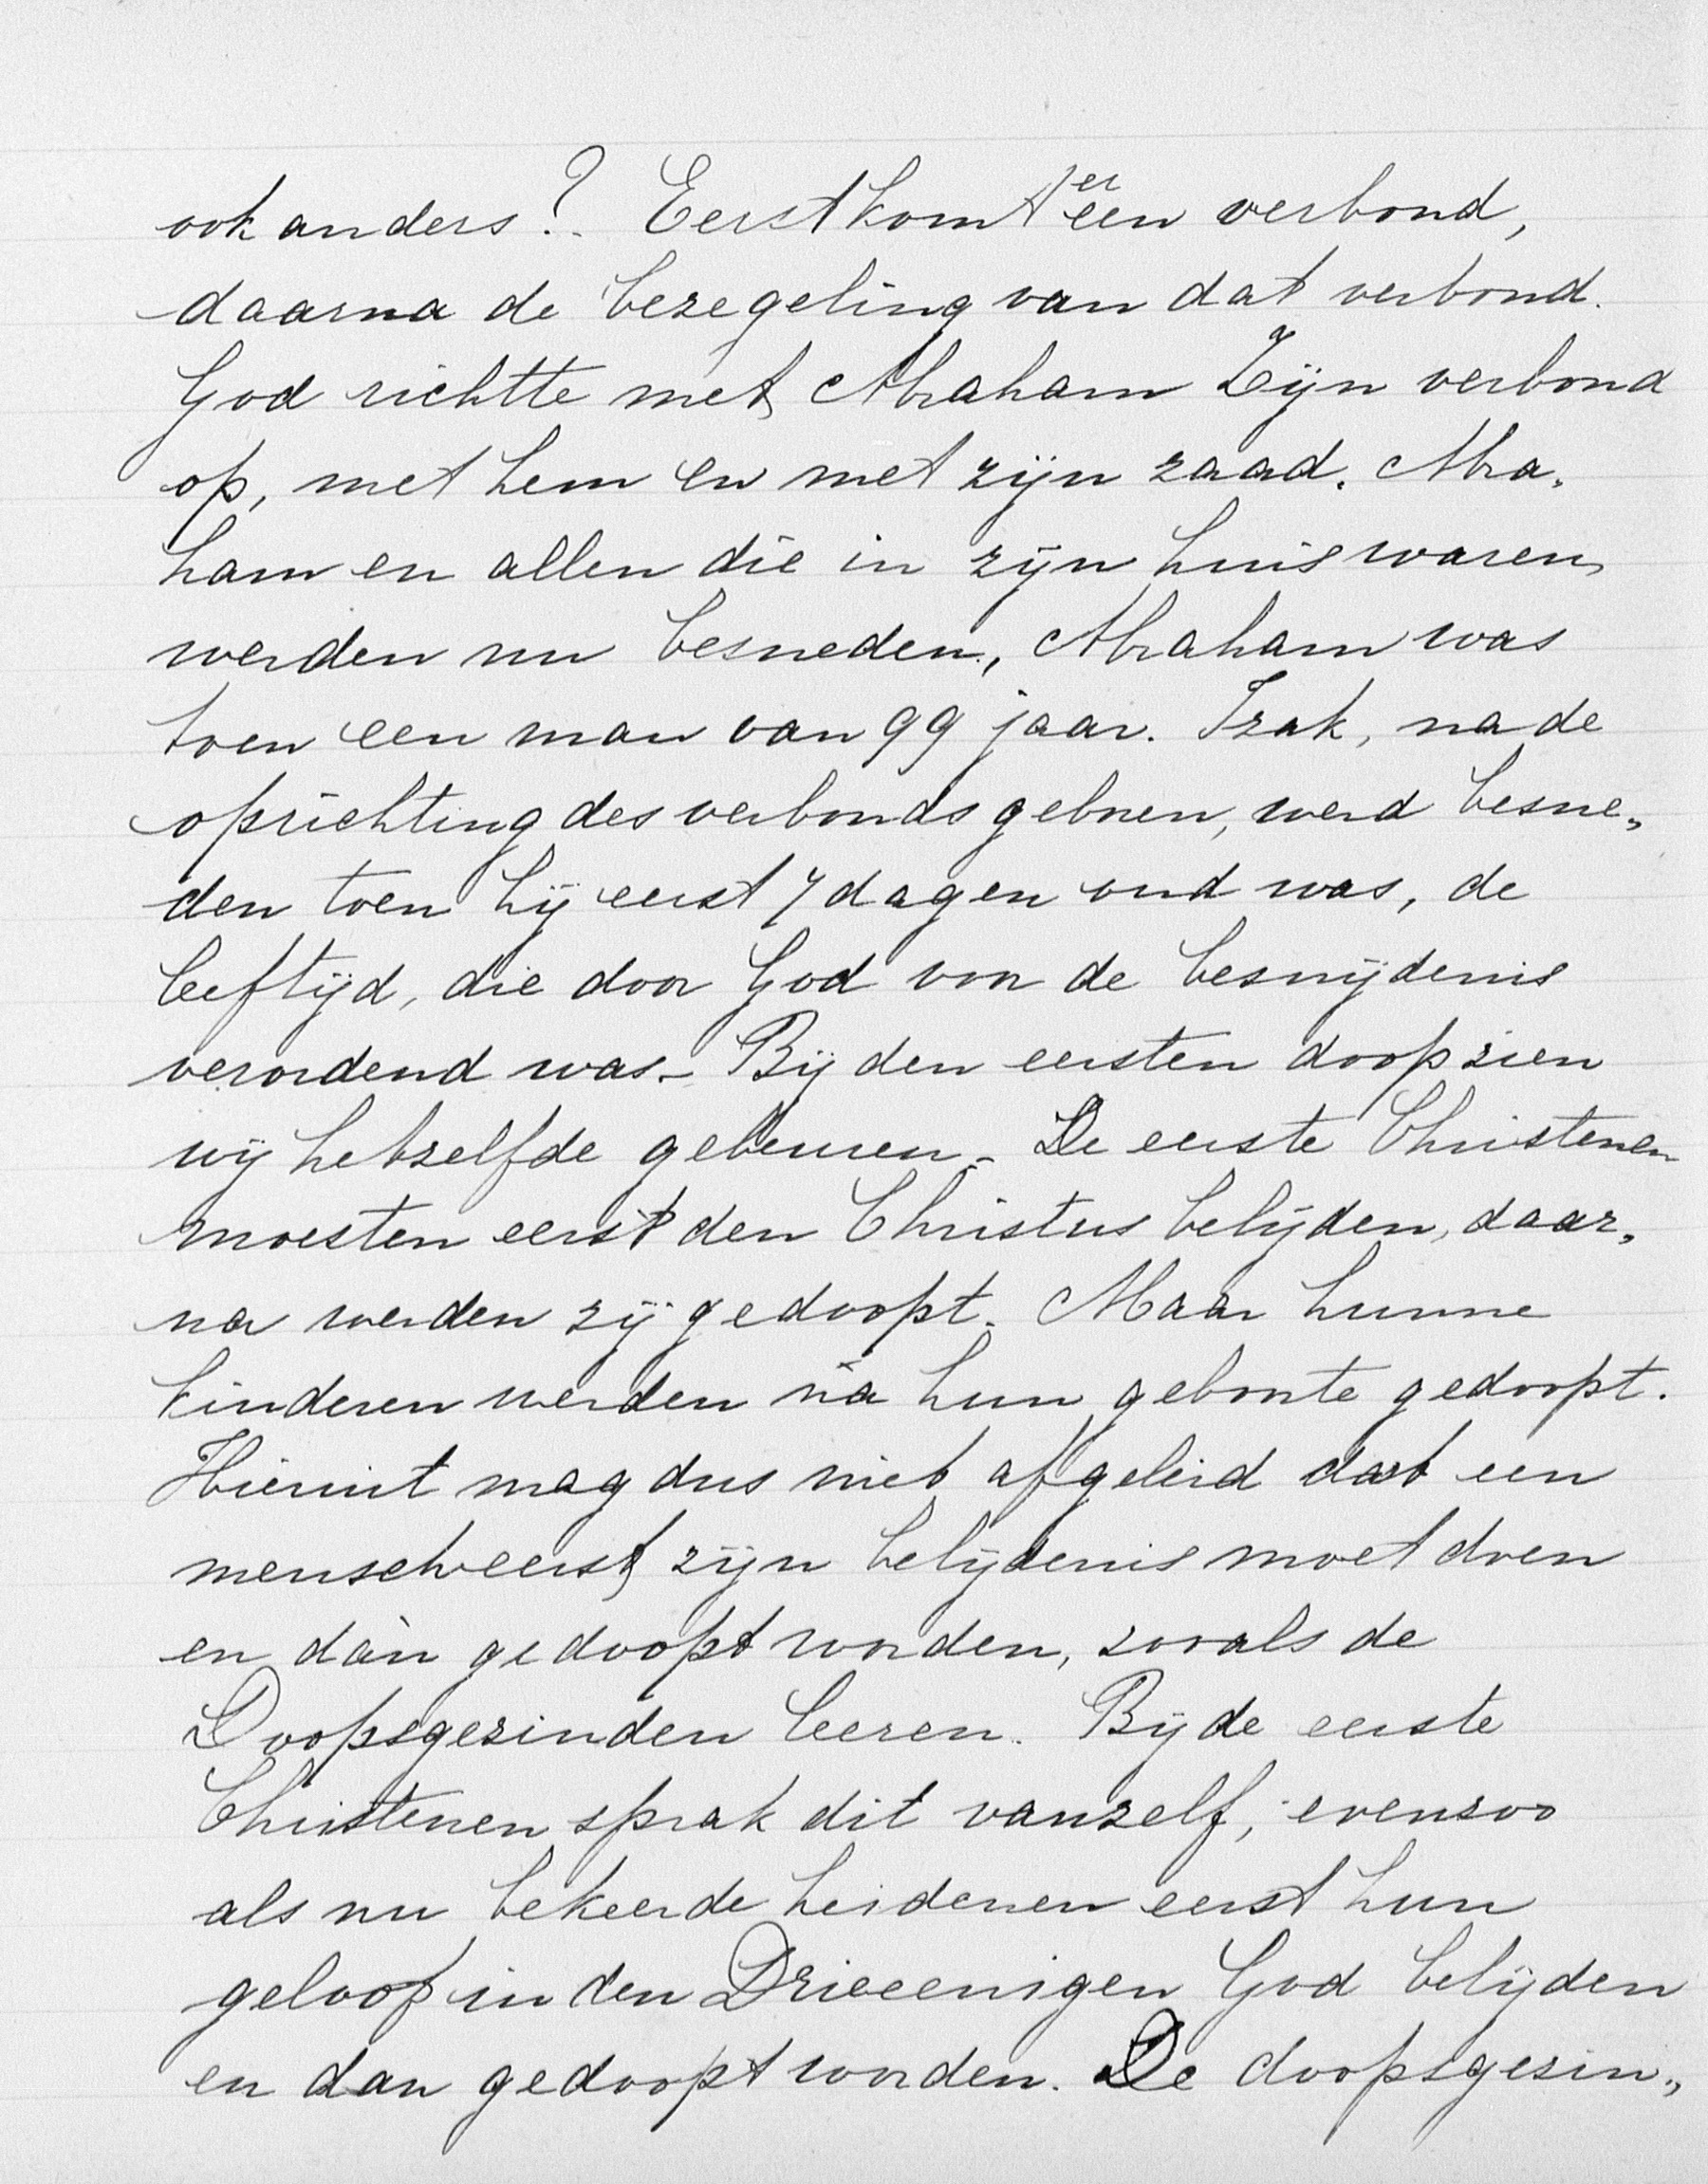 ook anders? Eerst komt er een verbond,
daarna de bezegeling van dat verbond.
God richtte met Abraham Zijn verbond
op, met hem en met zijn zaad. Abra„
ham en allen die in zijn huis waren
werden nu besneden, Abraham was
toen een man van 99 jaar. Izak, na de
oprichting des verbonds geboren, werd besne„
den toen hij eerst 7 dagen oud was, de
leeftijd, die door God voor de besnijdenis
verordend was. Bij den eersten doop zien
wij hetzelfde gebeuren. De eerste Christenen
moesten eerst den Christus belijden, daar„
na werden zij gedoopt. Maar hunne
kinderen werden na hun geboorte gedoopt.
Hieruit mag dus niet afgeleid dat een
mensch eerst zijn belijdenis moet doen
en dàn gedoopt worden, zooals de
Doopsgezinden leeren. Bij de eerste
Christenen sprak dit vanzelf, evenzoo
als nu bekeerde heidenen eerst hun
geloof in den Drieeenigen God belijden
en dan gedoopt worden. De doopsgezin„